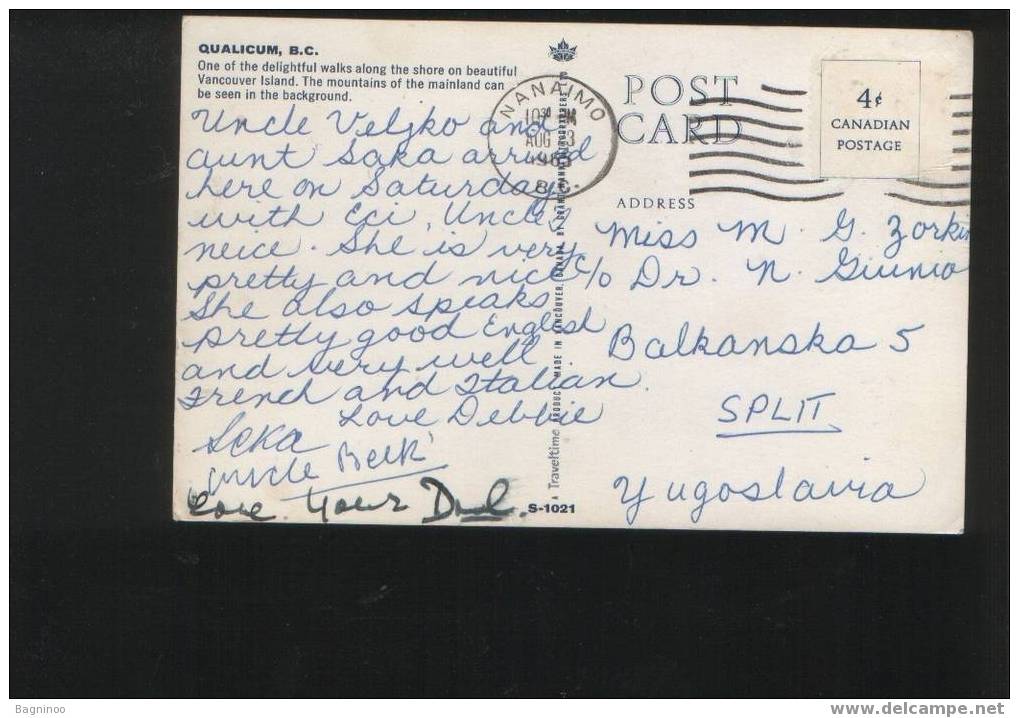 QUALICUM, B.C.
One of the delightful walks along the shore on beautiful
Vancouver Island. The mountains of the mainland can
be seen in the background.
Uncle Veljko and
aunt Saka arrived
here on Saturday
with Eci, Uncle's
neice. She is very
pretty and nice
She also speaks
pretty good English
and very well
French and Italian.
Love Debbie
Seka
Uncle
Love Your Dad.
S-1021
A Traveltime PRODUCT MADE IN VANCOUVER, CANADA, BY GRANT-MANN LITHOGRAPHERS LTD
NANAIMO
PM
AUG 23
B.C.
POST
CARD
4¢
CANADIAN
POSTAGE
ADDRESS
Miss M. G. Zorkin
c/o Dr. N. Giunio
Balkanska 5
SPLIT
Yugoslavia
Bagninoo
www.delcampe.net